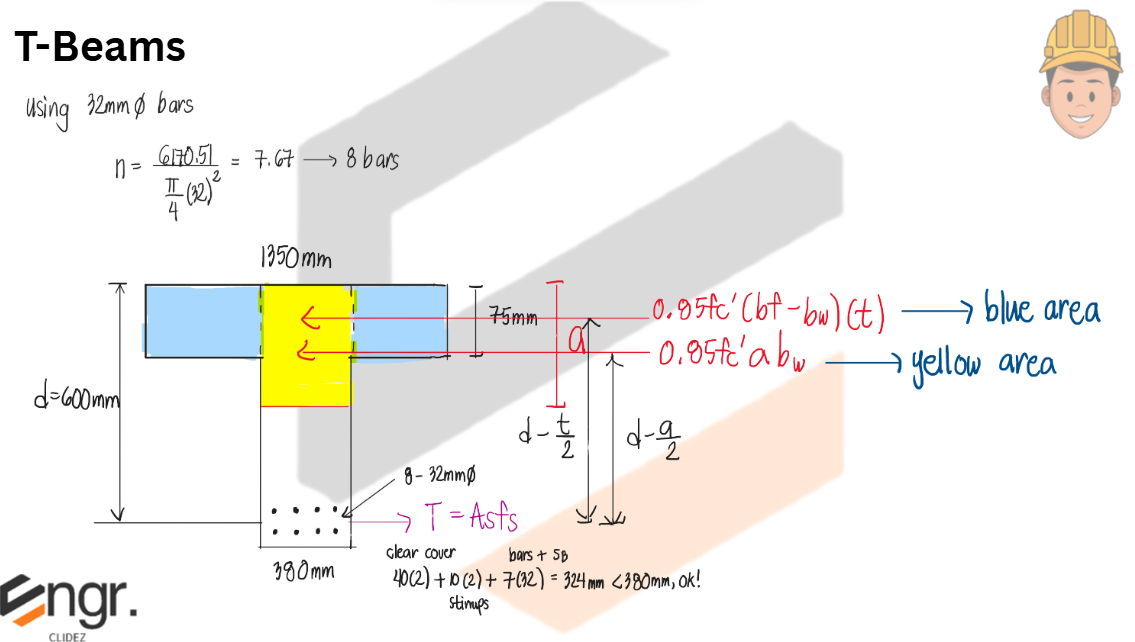 T-Beams
Using 32mm ø bars
n = 6170.51 / π/4 (32)² = 7.67 → 8 bars
1350mm
75mm
a
0.85fc'(bf-bw)(t) → blue area
0.85fc'abw → yellow area
d=600mm
d-t/2
d-a/2
8-32mmø
T = Asfs
380mm
clear cover
bars + SB
40(2) + 10(2) + 7(32) = 324mm < 380mm, ok!
stirrups
Engr.
CLIDEZ